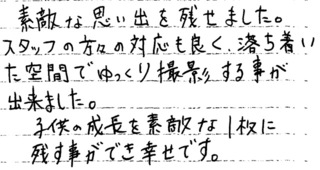 素敵な思い出を残せました。
スタッフの方々の対応も良く、落ち着い
た空間でゆっくり撮影する事が
出来ました。
子供の成長を素敵な1枚に
残す事ができ幸せです。